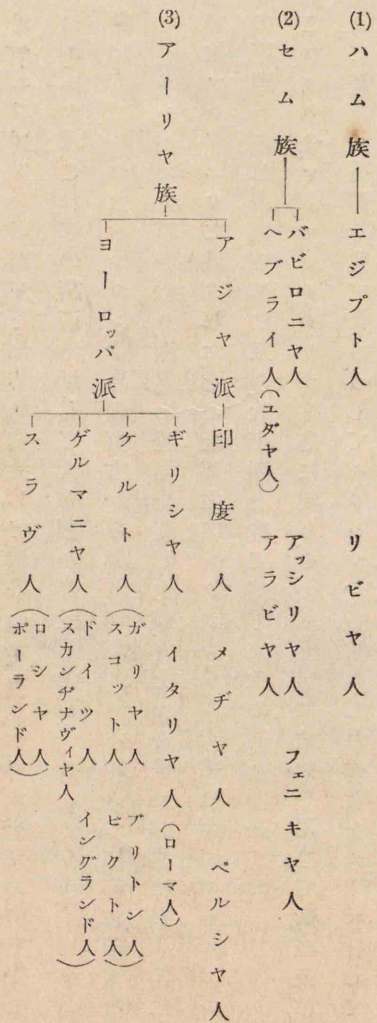 (1) ハム族 エジプト人 リビヤ人
(2) セム族
バビロニヤ人 アッシリヤ人 フェニキヤ人
ヘブライ人(ユダヤ人) アラビヤ人
(3) アーリヤ族
アジヤ派 印度人 メヂヤ人 ペルシヤ人
ヨーロッパ派
ギリシヤ人 イタリヤ人(ローマ人)
ケルト人(ガリヤ人 ブリトン人
スコット人 ピクト人)
ゲルマニヤ人(ドイツ人 イングランド人
スカンヂナヴィヤ人)
スラヴ人(ロシヤ人
ポーランド人)